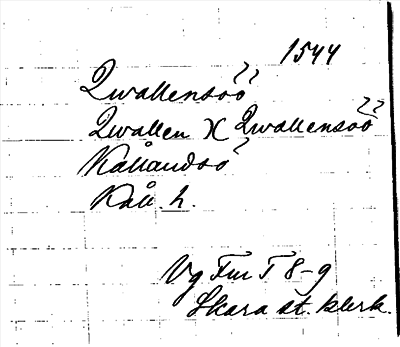 1544
Qwallensöö
Qwallen X Qwallensöö
Kållandsö
Kåll. h.
Vg Fru T 8-9
Skara st. klerk.